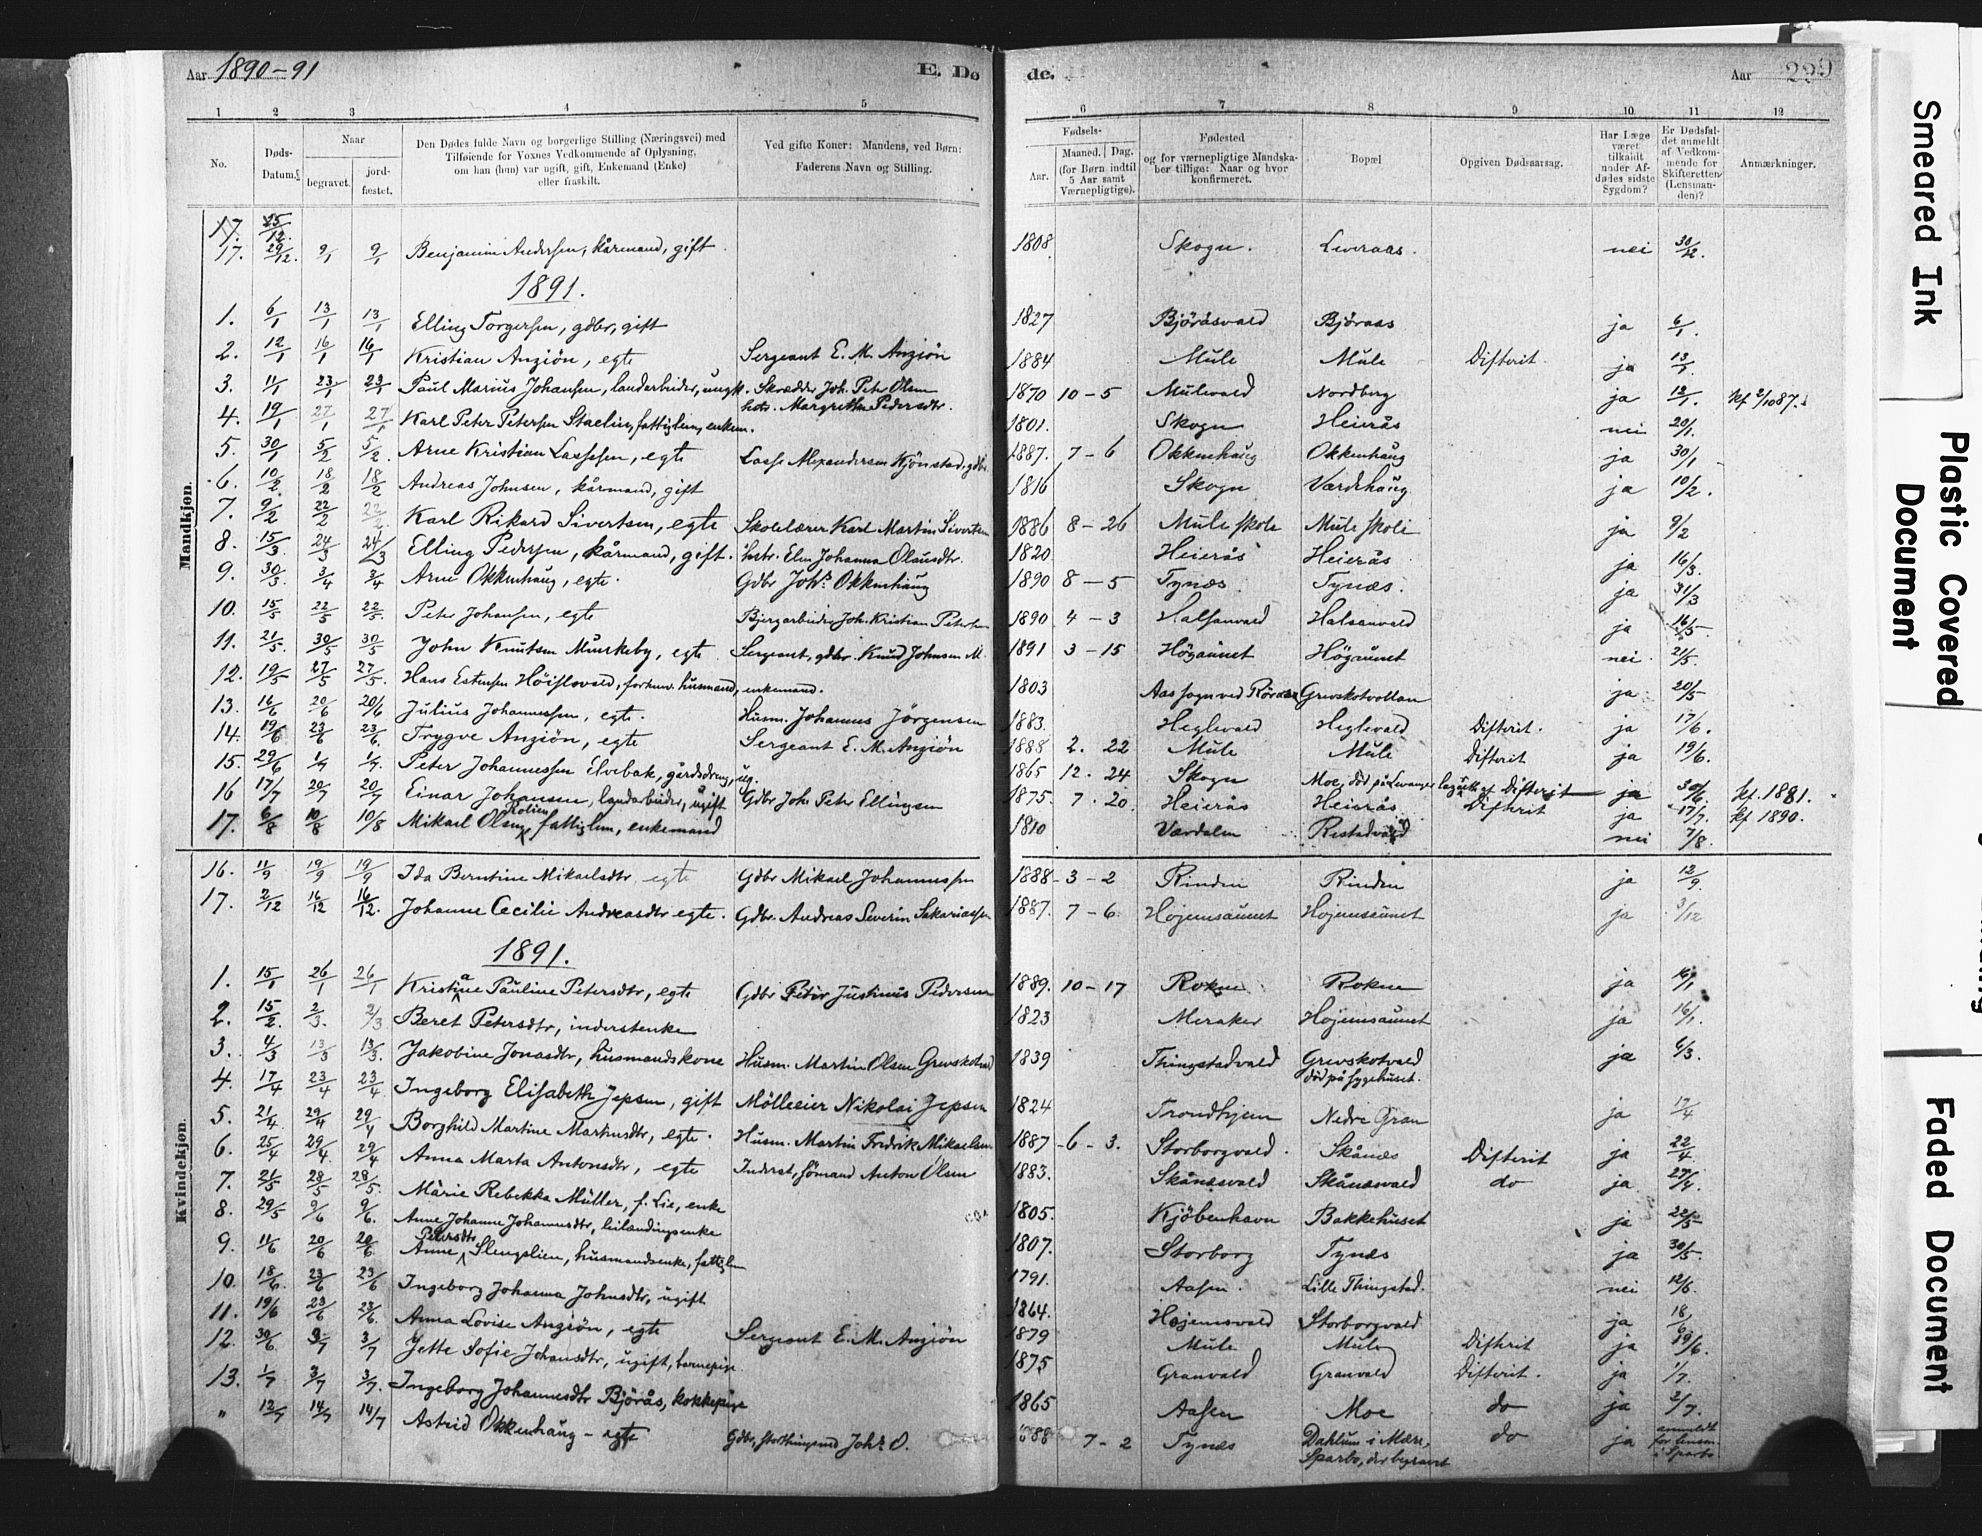 Aar 1890-91 E. Dø de. Aar 229
1 2 3 4 5 6 7 8 9 10 11 12
No. Døds-Datum. Naar begravet. jordfæstet. Den Dødes fulde Navn og borgerlige Stilling (Næringsvei) med Tilføiende for Voxnes Vedkommende af Oplysning, om han (hun) var ugift, gift, Enkemand (Enke) eller fraskilt. Ved gifte Koner: Mandens, ved Børn: Faderens Navn og Stilling. Fødsels- Aar. Maaned. Dag. (for Børn indtil 5 Aar samt Værnepligtige). Fødested og for værnepligtige Mandskaber tillige: Naar og hvor konfirmeret. Bopæl Opgiven Dødsaarsag. Har Læge været tilkaldt under Afdødes sidste Sygdom? Er Dødsfaldet anmeldt af Vedkommende for Skifteretten (Lensmanden)? Anmærkninger.
Mandkjøn.
17. 25/12.
17. 29/12. 9/1 9/1 Benjamin Andersen, kårmand, gift. 1808 Skogn. Leveraas. nei 30/12.
1891.
1. 6/1 13/1 13/1 Elling Torgersen, gdbr, gift 1827 Björåsvald Björaas ja 6/1.
2. 12/1 16/1 16/1 Kristian Anziön, egte Sergeant E. M. Anziön 1884 Mule Mule Difterit. ja 13/1.
3. 11/1 23/1 23/1 Paul Marius Johansen, landarbeider, ungk. Skrædder Joh. Peter Olsen hstr. Margrethe Pedersdtr. 1870 10-5 Mulevald Nordberg ja 12/1. kf 2/10 87.
4. 19/1 27/1 27/1 Karl Peter Petersen Staelien, fattiglem, enkem. 1801. Skogn Heierås nei 20/1.
5. 30/1 5/2 5/2. Arne Kristian Lassesen, egte Lasse Alexandersen Kjönstad, gdbr. 1887. 7-6 Okkenhaug Okkenhaug ja 30/1
6. 10/2. 18/2 18/2 Andreas Johnsen, kårmand, gift 1816 Skogn Vardehaug ja 10/2.
7. 9/2 22/2 22/2 Karl Rikard Sivertsen, egte Skolelærer Karl Martin Sivertsen 1886 8-26 Mule skole Mule skole ja 9/2
8. 15/3. 24/3 24/3 Elling Pedersen, kårmand, gift. hstr. Elen Johanna Olausdtr. 1820 Heierås Heierås ja 16/3.
9. 30/3 3/4 3/4 Arne Okkenhaug, egte. Gdbr Johs. Okkenhaug 1890 8-5 Tynæs Tynæs. ja 31/3
10. 15/5 22/5 22/5. Peter Johansen, egte Bjergarbeider Joh. Kristian Petersen 1890 4-3 Halsanvald Halsanvald ja 16/5.
11. 21/5. 30/5 30/5 John Knutsen Munkeby, egte Sergeant, gdbr. Knud Johnsen M. 1891 3-15 Högaunet Högaunet nei. 21/5.
12. 19/5 27/5 27/5. Hans Estensen Höislovald, forhenv. husmand, enkemand. 1803 Aas sogn ved Röraas Grevskotvollan ja 20/5
13. 16/6 20/6 20/6 Julius Johannessen, egte. Husm. Johannes Jörgensen 1883. Heglevald Heglevald Difterit. ja 17/6.
14. 19/6 23/6 23/6. Trygve Anziön, egte Sergeant E. M. Anziön 1888 2. 22 Mule Mule Difterit ja 19/6.
15. 29/6 1/7 1/7. Peter Johannessen Elvebak, gårdsdreng, ug. 1865 12. 24 Skogn Moe, död på Levanger lazaret af Difterit ja 30/6. kf. 1881.
16 17/7 20/7 20/7 Einar Johansen, landarbeider, ugift Gdbr Joh. Peter Ellingsen 1875. 7. 20. Heierås Heierås Difterit ja 17/7. kf 1890.
17. 6/8 10/8 10/8 Mikael Olsen Rolien fattiglem, enkemand 1810 Værdalen Restadvald nei 7/8.
Kvindekjøn.
16. 11/9 19/9 19/9 Ida Berntine Mikaelsdtr egte Gdbr Mikael Johannessen 1888 3-2 Rinden Rinden ja 12/9.
17. 2/12 16/12 16/12. Johanne Cecilie Andreasdtr egte. Gdbr. Andreas Severin Sakariassen 1887. 7-6. Höjemsaunet Höjemsaunet ja 3/12
1891.
1. 15/1 26/1 26/1 Kristiane Pauline Petersdtr, egte Gdbr Peter Justinus Pedersen 1889. 10-17 Rokne Rokne ja 16/1
2. 15/2. 2/3. 2/3 Beret Petersdtr, inderstenke 1823 Meraker Höjemsaunet ja 16/1.
3. 4/3 13/3 13/3. Jakobine Jonasdtr, husmandskone Husm. Martin Olsen Grevskotvald 1839 Thingstadvald Grevskotvald död på sygehuset. ja 6/3.
4. 17/4 23/4 23/4 Ingeborg Elisabeth Jepsen, gift Mölleeier Nikolai Jepsen 1824 Trondhjem Nedre Gran ja 17/4
5. 21/4. 29/4 29/4 Borghild Martine Martinsdtr, egte. Husm. Martin Fredrik Mikaelsen 1887 6-3. Storborgvald. Skånes Difterit ja 22/4.
6. 25/4 29/4. 29/4 Anna Marta Antonsdtr, egte Inderst, sömand Anton Olsen 1883. Skånæsvald Skånæsvald do ja. 27/4.
7. 21/5 28/5 28/5. Marie Rebekka Müller, f. Lie, enke 1805. Kjöbenhavn Bakkehuset ja 22/5
8. 29/5 9/6 9/6. Anne Johanne Johannesdtr, leilændingsenke 1807. Storborg Tynæs ja 30/5.
9. 11/6 20/6 20/6 Anne Petersdtr Slengslien, husmandsenke, fattiglem 1791. Aasen. Lille Thingstad. nei 12/6.
10. 18/6. 23/6 23/6 Ingeborg Johanna Johnsdtr, ugift 1864. Höjemsvald Storborgvald ja 18/6
11. 19/6 23/6 23/6. Anna Lovise Anziön, egte Sergeant E. M. Anziön 1879 Mule Mule Difterit ja 19/6.
12. 30/6. 3/7 3/7 Jette Sofie Johansdtr, ugift, barnepige 1875 Granvald Granvald Difterit. ja 1/7.
13. 1/7 3/7 3/7. Ingeborg Johannesdtr Björås, kokkepige 1865 Aasen Moe do ja 2/7.
" 12/7 14/7 14/7 Astrid Okkenhaug - egte Gdbr, storthingsmd Johs. O. 1888 7-2 Tynæs Dahlum i Mære, Sparbo, der begravet do ja anmeldt for lensm. i Sparbo.
Smeared Ink
Plastic Covered Document
Faded Document